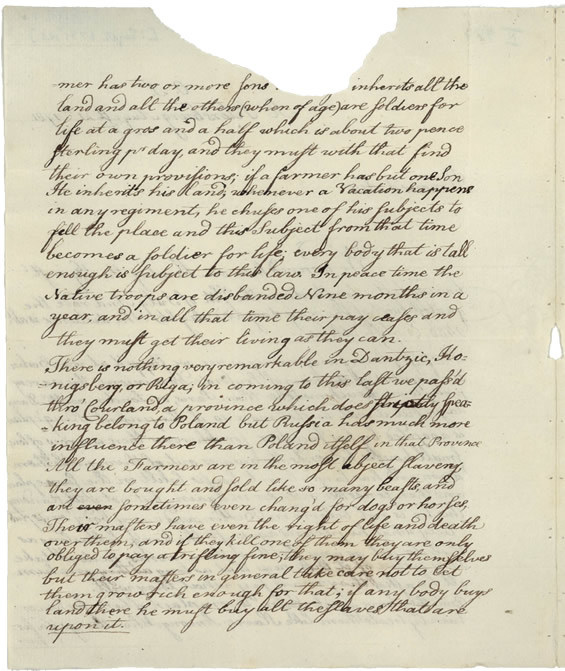 mer has two or more sons inherits all the
land and all the others (when of age) are soldiers for
life at a gros and a half which is about two pence
sterling pr day, and they must with that find
their own provisions; if a farmer has but one Son
He inherits his land; whenever a Vacation happens
in any regiment, he chuses one of his subjects to
fill the place and this Subject from that time
becomes a soldier for life; every body that is tall
enough is subject to this law. In peace time the
Native troops are disbanded Nine months in a
year, and in all that time their pay ceases and
they must get their living as they can.
There is nothing very remarkable in Dantzic, Ko:
-nigsberg, or Riga; in coming to this last we pass'd
thro' Courland, a province which does strictly spea-
-king belong to Poland but Russia has much more
influence there than Poland itself in that Provence
All the Farmers are in the most abject slavery,
they are bought and sold like so many beasts, and
are even sometimes even chang'd for dogs or horses,
Their masters have even the right of life and death
over them, and if they kill one of them they are only
obliged to pay a trifling fine; they may buy themselves
but their masters in general take care not to let
them grow rich enough for that; if any body buys
land there he must buy all the slaves that are
upon it.